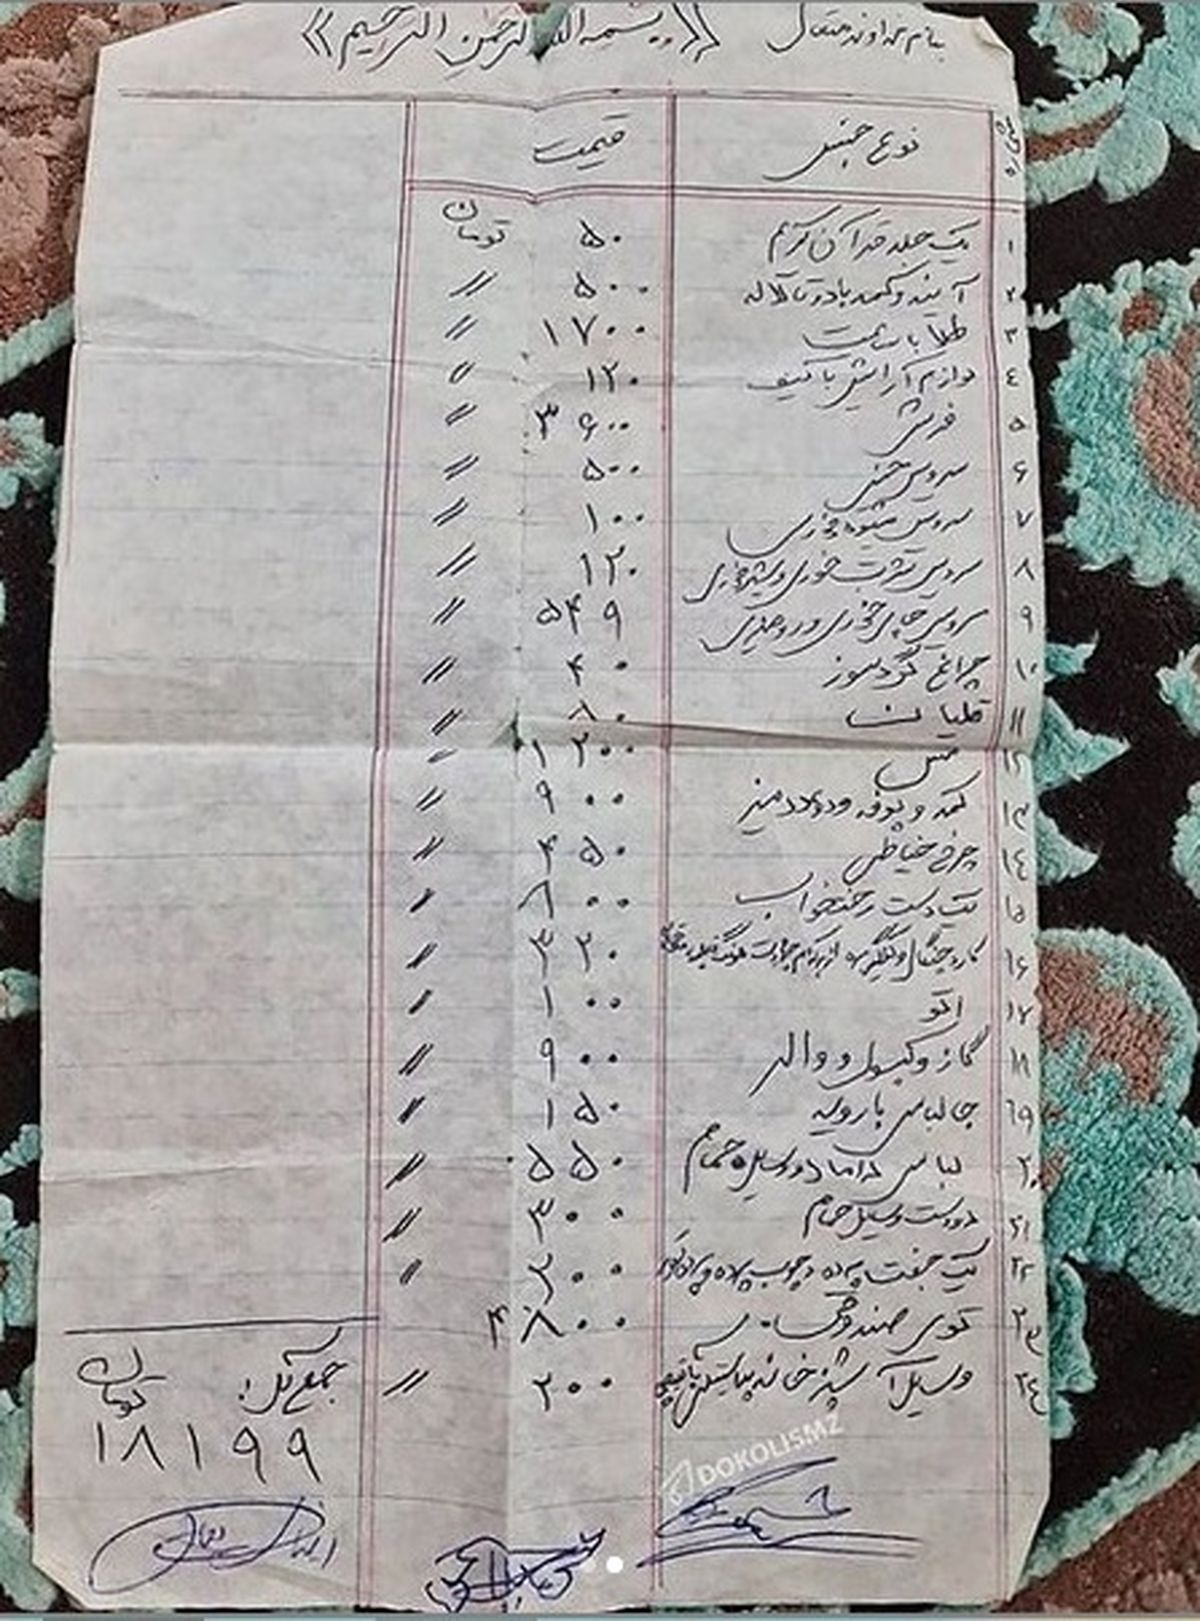 بنام خداوند متعال ((بسمه الله الرحمن الرحیم))
شماره نوع جنس قیمت
۱ یک جلد قرآن کریم ۵۰ تومان
۲ آینه و کمد با دو تا لاله ۵۰۰ //
۳ طلا بابت ۱۷۰۰ //
٤ لوازم آرایش با کیف ۱۲۰ //
۵ فرش ۳۶۰۰ //
۶ سرویس چینی ۵۰۰ //
۷ سرویس میوه خوری ۱۰۰ //
۸ سرویس شربت خوری و شیر خوری ۱۲۰ //
۹ سرویس چای خوری و رو ۵۴۹ //
۱۰ چراغ گردسوز ۴۰ //
۱۱ قلیان ۸۰ //
۱۲ مبل ۱۲۰۰ //
۱۳ کمد و بوفه و میز ۹۰۰ //
۱٤ چرخ خیاطی ۴۵۰ //
۱۵ یک دست رختخواب ۸۰۰ //
۱۶ کارد چنگال و کفگیر از هر کدام //
۱۷ اتو ۱۰۰ //
۱۸ گاز و کپسول و والر ۹۰۰ //
۱۹ جالباسی با رویه ۱۵۰ //
۲۰ لباس داماد و وسیله حمام ۵۵۰ //
۲۱ دو دست وسیله حمام ۳۰۰ //
۲۲ یک جفت پرده و چوب پرده و //
۲۳ توی صندوق ۴۸۰۰
۲٤ وسایل آشپزخانه پلاستیکی ۲۰۰ //
جمع کل: تومان
۱۸۱۹۹
ADOKOLISMZ